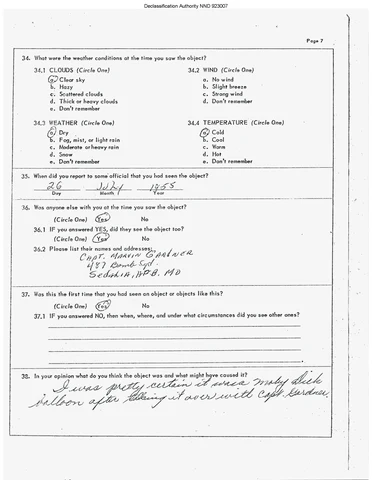 Declassification Authority NND 923007
Page 7
34. What were the weather conditions at the time you saw the object?
34.1 CLOUDS (Circle One) 34.2 WIND (Circle One)
a. Clear sky a. No wind
b. Hazy b. Slight breeze
c. Scattered clouds c. Strong wind
d. Thick or heavy clouds d. Don't remember
e. Don't remember
34.3 WEATHER (Circle One) 34.4 TEMPERATURE (Circle One)
a. Dry a. Cold
b. Fog, mist, or light rain b. Cool
c. Moderate or heavy rain c. Warm
d. Snow d. Hot
e. Don't remember e. Don't remember
35. When did you report to some official that you had seen the object?
26 July 1955
Day Month Year
36. Was anyone else with you at the time you saw the object?
(Circle One) Yes No
36.1 IF you answered YES, did they see the object too?
(Circle One) Yes No
36.2 Please list their names and addresses:
CAPT. MARVIN GARDNER
Bomb Sqd.
SEDALIA, AFB. MO
37. Was this the first time that you had seen an object or objects like this?
(Circle One) Yes No
37.1 IF you answered NO, then when, where, and under what circumstances did you see other ones?
38. In your opinion what do you think the object was and what might have caused it?
I was pretty certain it was a Moby Dick
balloon after talking it over with Capt. Gardner.